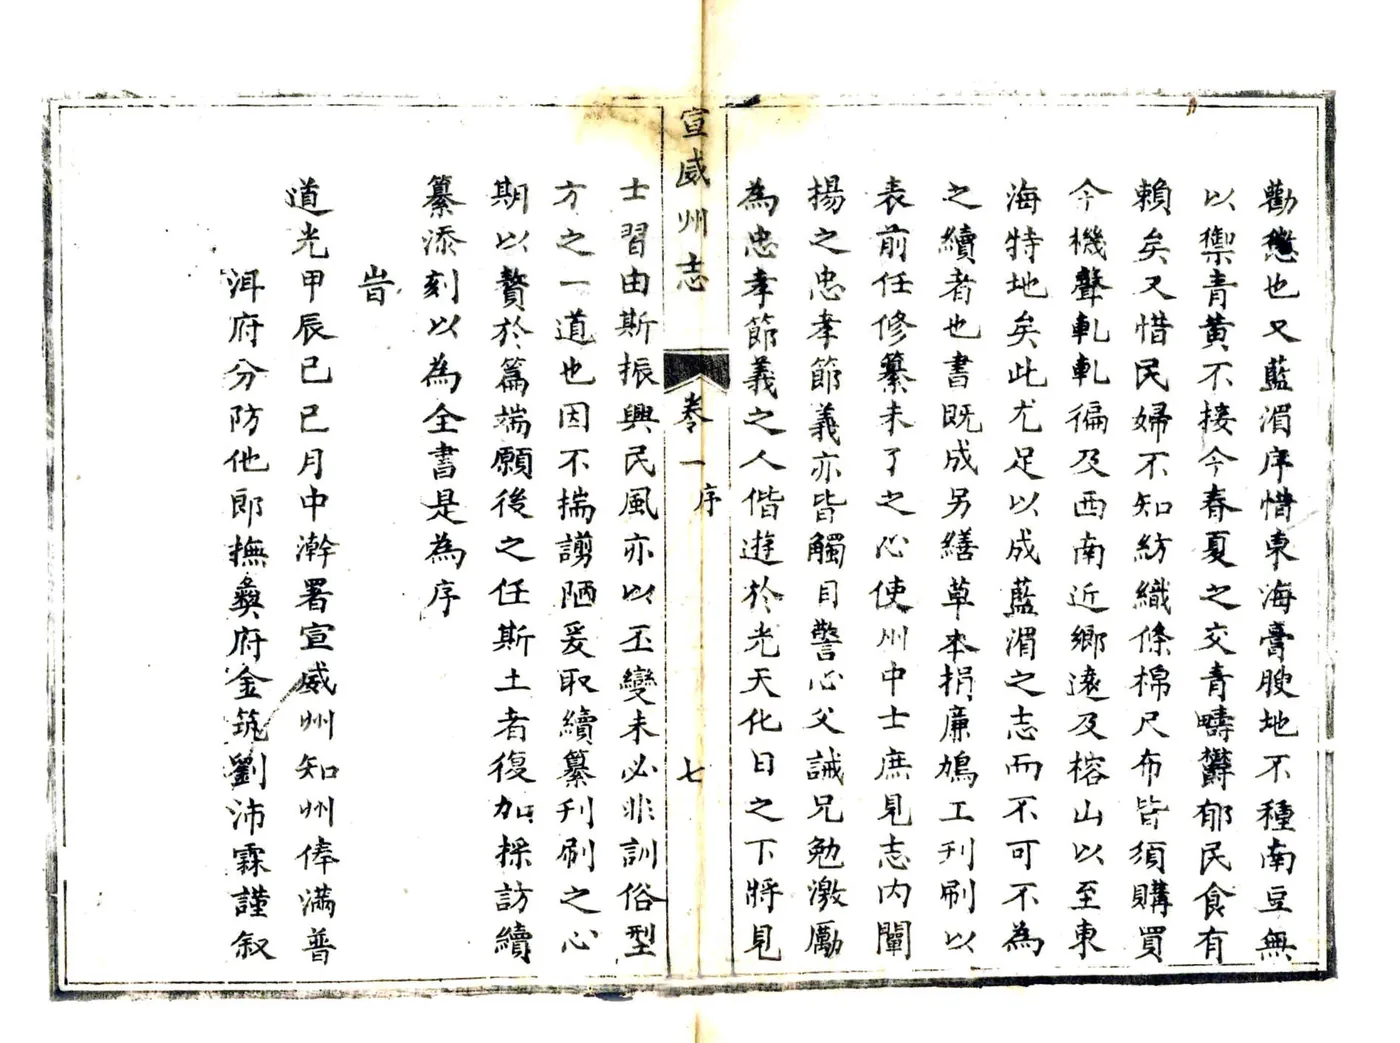 勸懲也又藍湄序惜東海膏腴地不種南豆無
以禦青黃不接今春夏之交青疇欝郁民食有
賴矣又惜民婦不知紡織條棉尺布皆須購買
今機聲軋軋徧及西南近鄉遠及榕山以至東
海特地矣此尤足以成藍湄之志而不可不為
之續者也書既成另繕草本捐廉鳩工刋刷以
表前任修纂未了之心使州中士庶見志內闡
揚之忠孝節義亦皆觸目警心父誡兄勉激厲
為忠孝節義之人偕遊於光天化日之下將見
宣威州志
卷一
序
七
士習由斯振興民風亦以丕變未必非訓俗型
方之一道也因不揣譾陋爰取續纂刋刷之心
期以贅於篇端願後之任斯土者復加採訪續
纂添刻以為全書是為序
旹
道光甲辰己巳月中澣署宣威州知州俸滿普
洱府分防他郎撫彝府金筑劉沛霖謹叙